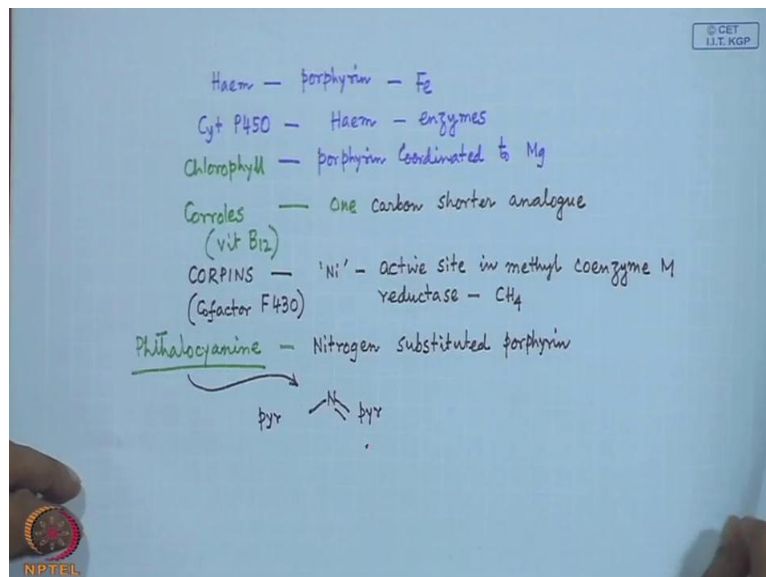 © CET
I.I.T. KGP
Haem — porphyrin — Fe
Cyt P450 — Haem — enzymes
Chlorophyll — porphyrin coordinated to Mg
Corroles — one carbon shorter analogue
(vit B12)
CORPINS — 'Ni' — active site in methyl coenzyme M
(Cofactor F430) reductase — CH4
Phthalocyanine — Nitrogen substituted porphyrin
pyr N pyr
NPTEL